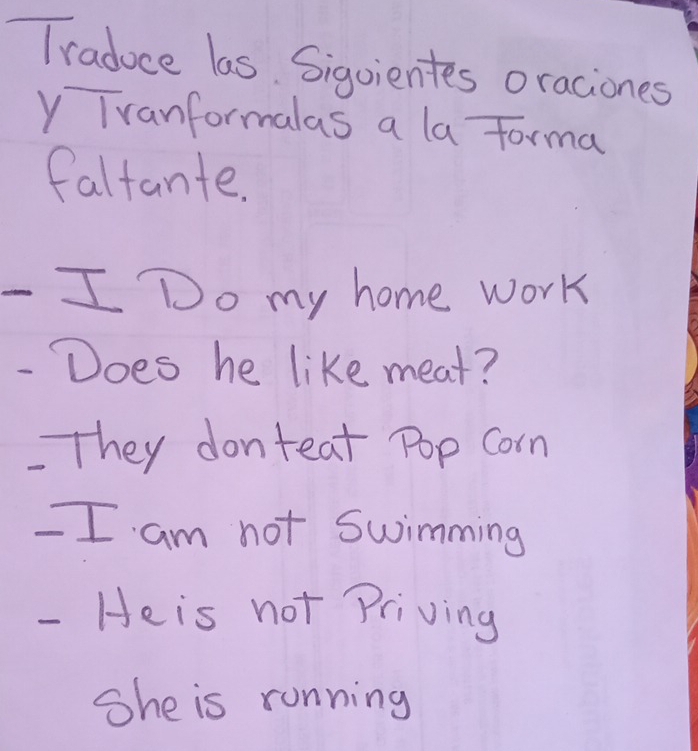 Traduce las Siguientes oraciones
y Tranformalas a la forma
faltante.
- I Do my home work
- Does he like meat?
- They don teat Pop Corn
- I am not swimming
- He is not Priving
She is running